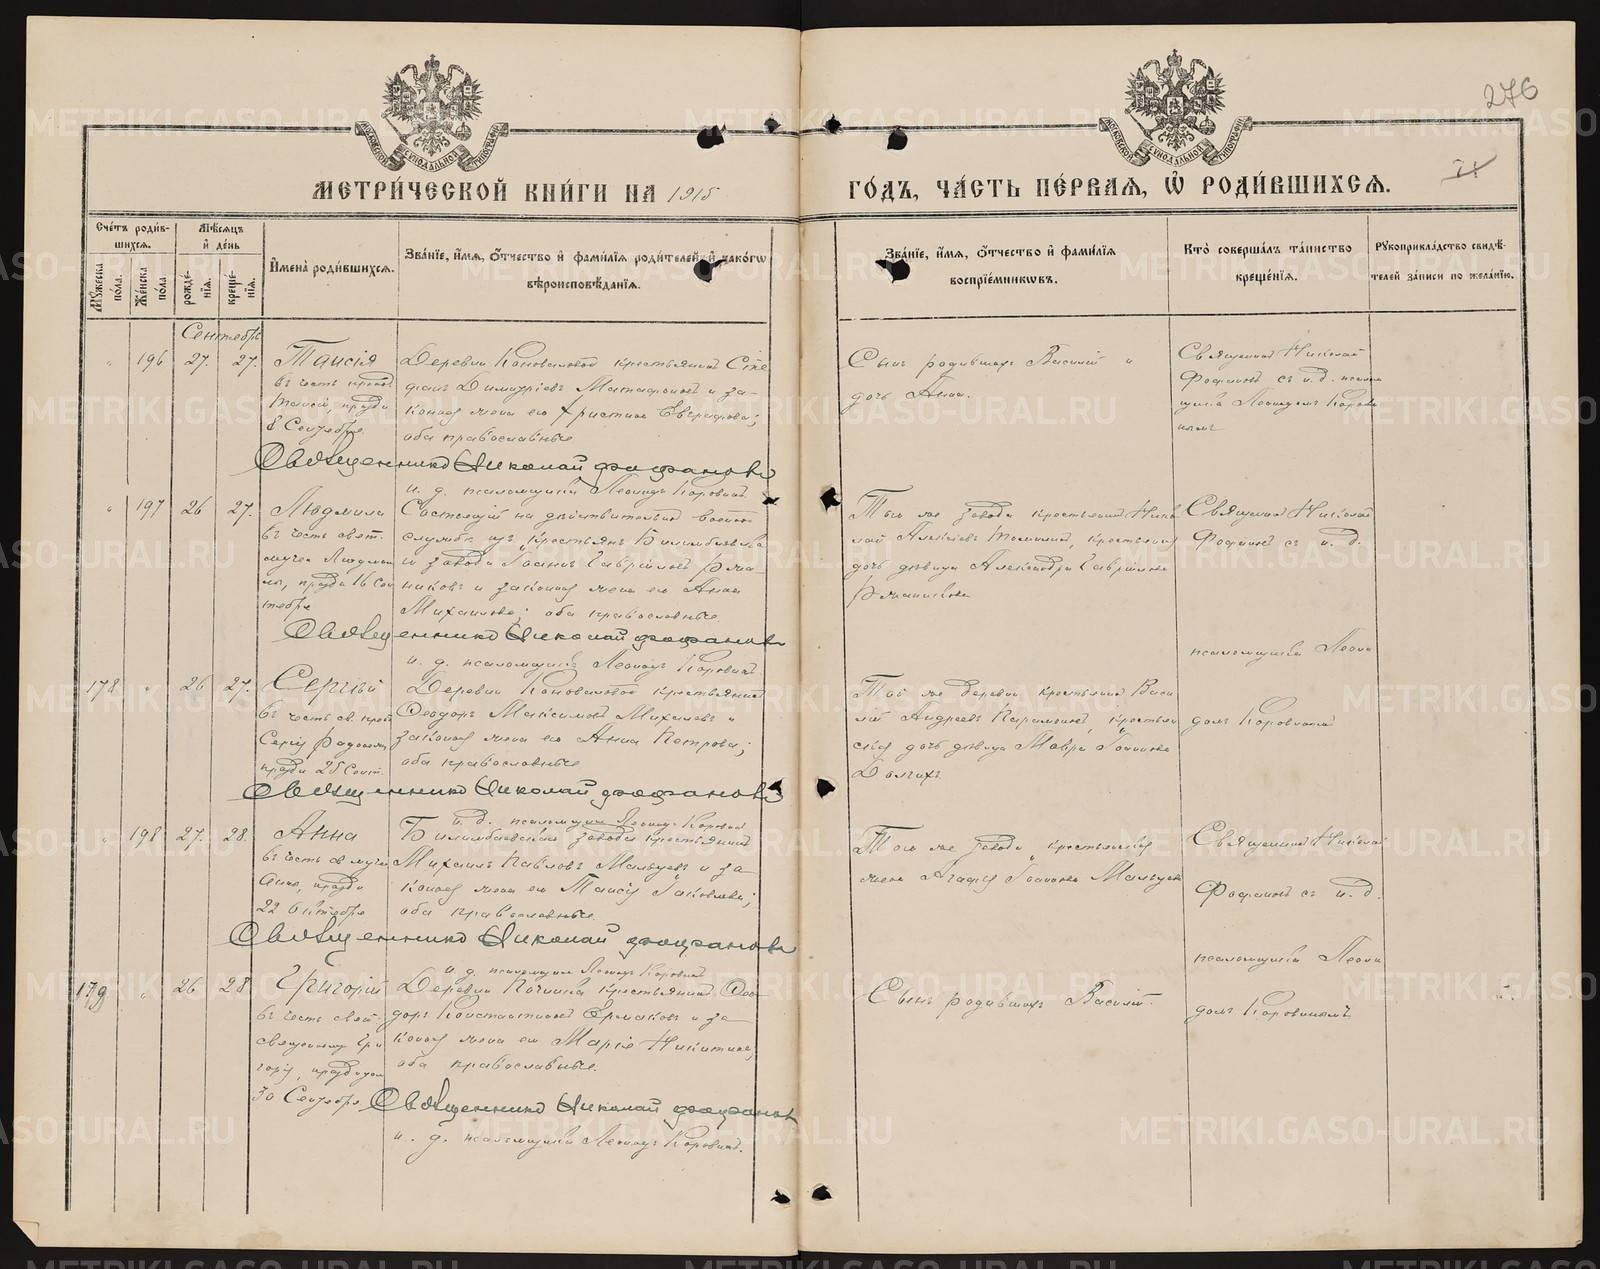 276
МЕТРИ́ЧЕСКОЙ КНИ́ГИ НА 1915
ГО́ДЪ, ЧА́СТЬ ПЕ́РВАѦ, Ѽ РОДИ́ВШИХСѦ.
Сче́тъ роди́вшихсѧ.
Мѣ́сѧцъ и́ де́нь
Му́жеска по́ла.
Же́нска по́ла
рожде́нїѧ.
креще́нїѧ.
И҆мена̀ роди́вшихсѧ.
Зва́нїе, и҆́мѧ, ѻ҆́тчество и҆ фами́лїѧ роди́телей, и҆ како́гѡ
вѣроисповѣ́данїѧ.
Зва́нїе, и҆́мѧ, ѻ҆́тчество и҆ фами́лїѧ
воспрїе́мникѡвъ.
Кто̀ соверша́лъ та́инство
креще́нїѧ.
Рꙋкоприкла́дство свидѣ́телей за́писи по жела́нїю.
Сентябрь
196 27. 27. Таисія
Деревни Коноваловой крестьянинъ Сте
фанъ Димитріевъ и за-
конная жена его Христина
оба православные
8 Сентября
Сынъ родившихъ Василій и
дочь Анна.
Священникъ Николай
съ и. д. псалом
щика Леонидомъ Корови
нымъ
Священникъ Николай Фофановъ
и. д. псаломщика Леонидъ Коровинъ
197 26 27. Людмила
въ честь свят.
мучен Людми
лы, празд 16 Сен
тября
Состоящій на действительной военной
службе изъ крестьянъ Билимбаевска
го завода Іоаннъ Гавріиловъ
и законная жена его Анна
Михаилова; оба православные.
Того же завода крестьянинъ Нико
лай и крестьянская
дочь девица Александра Гавріилова
Священникъ Николай
съ и. д.
псаломщика Леони
домъ Коровинымъ
Священникъ Николай Фофановъ
и. д. псаломщика Леонидъ Коровинъ
178 26 27. Сергій
въ честь св. преп
Сергія Радонеж
празд 25 Сент.
Деревни Коноваловой крестьянинъ
Ѳеодоръ Максимовъ Михалевъ и
законная жена его Анна Петрова;
оба православные
Той же деревни крестьянинъ Васи
лій Андреевъ и крестьян
ская дочь девица Мавра Іоаннова
Долгихъ
Священникъ Николай Фофановъ
и. д. псаломщика Леонидъ Коровинъ
198 27. 28. Анна
въ честь св муч
Анны, празд
22 Октября
Билимбаевскаго завода крестьянинъ
Михаилъ Павловъ Мальцевъ и за
конная жена его Таисія Іаковлева;
оба православные.
Того же завода крестьянская
жена Агафія Іоаннова Мальцева
Священникъ Николай
съ и. д.
псаломщика Леони
домъ Коровинымъ
Священникъ Николай Фофановъ
и. д. псаломщика Леонидъ Коровинъ
179 26 28 Григорій
въ честь свят.
священному Гри
горія, празднуем
30 Сентября
Деревни Починка крестьянинъ Ѳео
доръ Константиновъ Ермаковъ и за
конная жена его Марія Никитина;
оба православные.
Сынъ родившихъ Василій.
Священникъ Николай Фофановъ
и. д. псаломщика Леонидъ Коровинъ.
METRIKI.GASO-URAL.RU